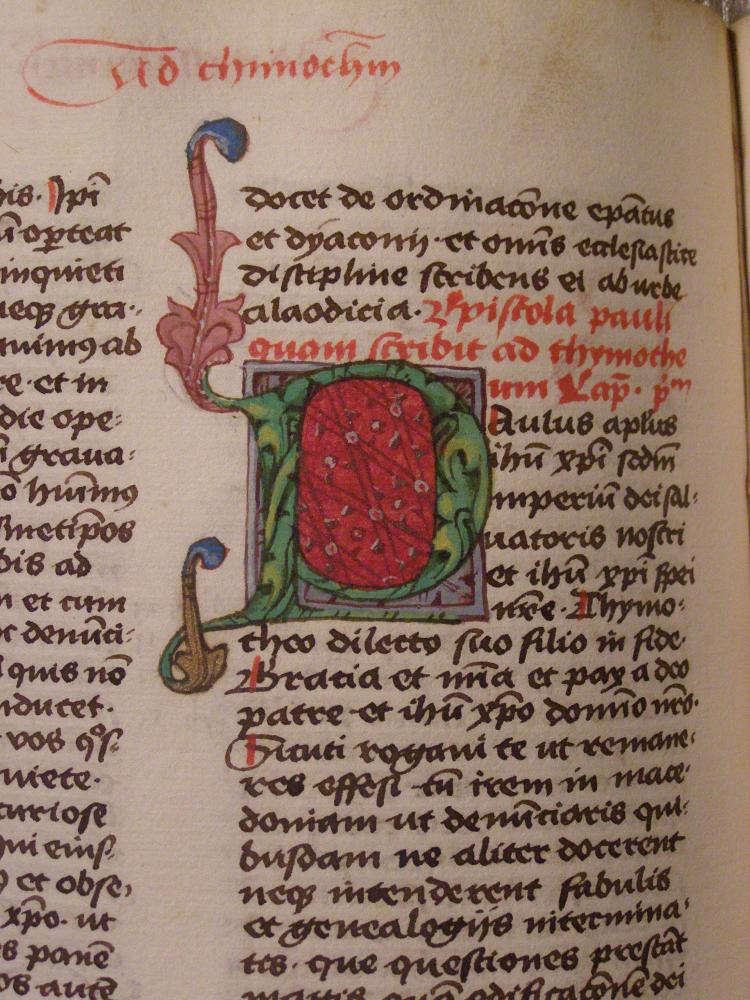 Ad thimoth̄m
his. Xp̄i
ū oꝑteat
inquieti
neqꝫ gra-
auimꝰ ab
re · et in
die ope-
i graua-
ō hūimꝰ
smetip̄os
bis ad
m et cum
c denūci-
quis nō
nducet.
vos qͦs.
uiete.
curiose
qui eius
et obse,
xp̄o. ut
s panē
os autē
docet de ordinacōne ep̄atus
et dyaconij · et om̄is ecclesiastice
discipline scribens ei ab urbe
alaodicia. Epistola pauli
quam scribit ad thymothe
um Cap̄. p̄ᵐ
PAulus ap̄lus
ihū xp̄i scdm̄
imperiū dei sal-
uatoris nostri
et ihū xp̄i spei
nr̄e. Thymo-
theo dilecto suo filio in fide.
Gracia et mīa et pax a deo
patre et ihū xp̄o domīo nr̄o.
Sicuti rogaui te ut remane-
res effesi cū irem in mace-
doniam ut denūciaris qui-
busdam ne aliter docerent
neqꝫ intenderent fabulis
et genealogijs intermina-
tis. que questiones prestāt
magis quā edificacōnē dei